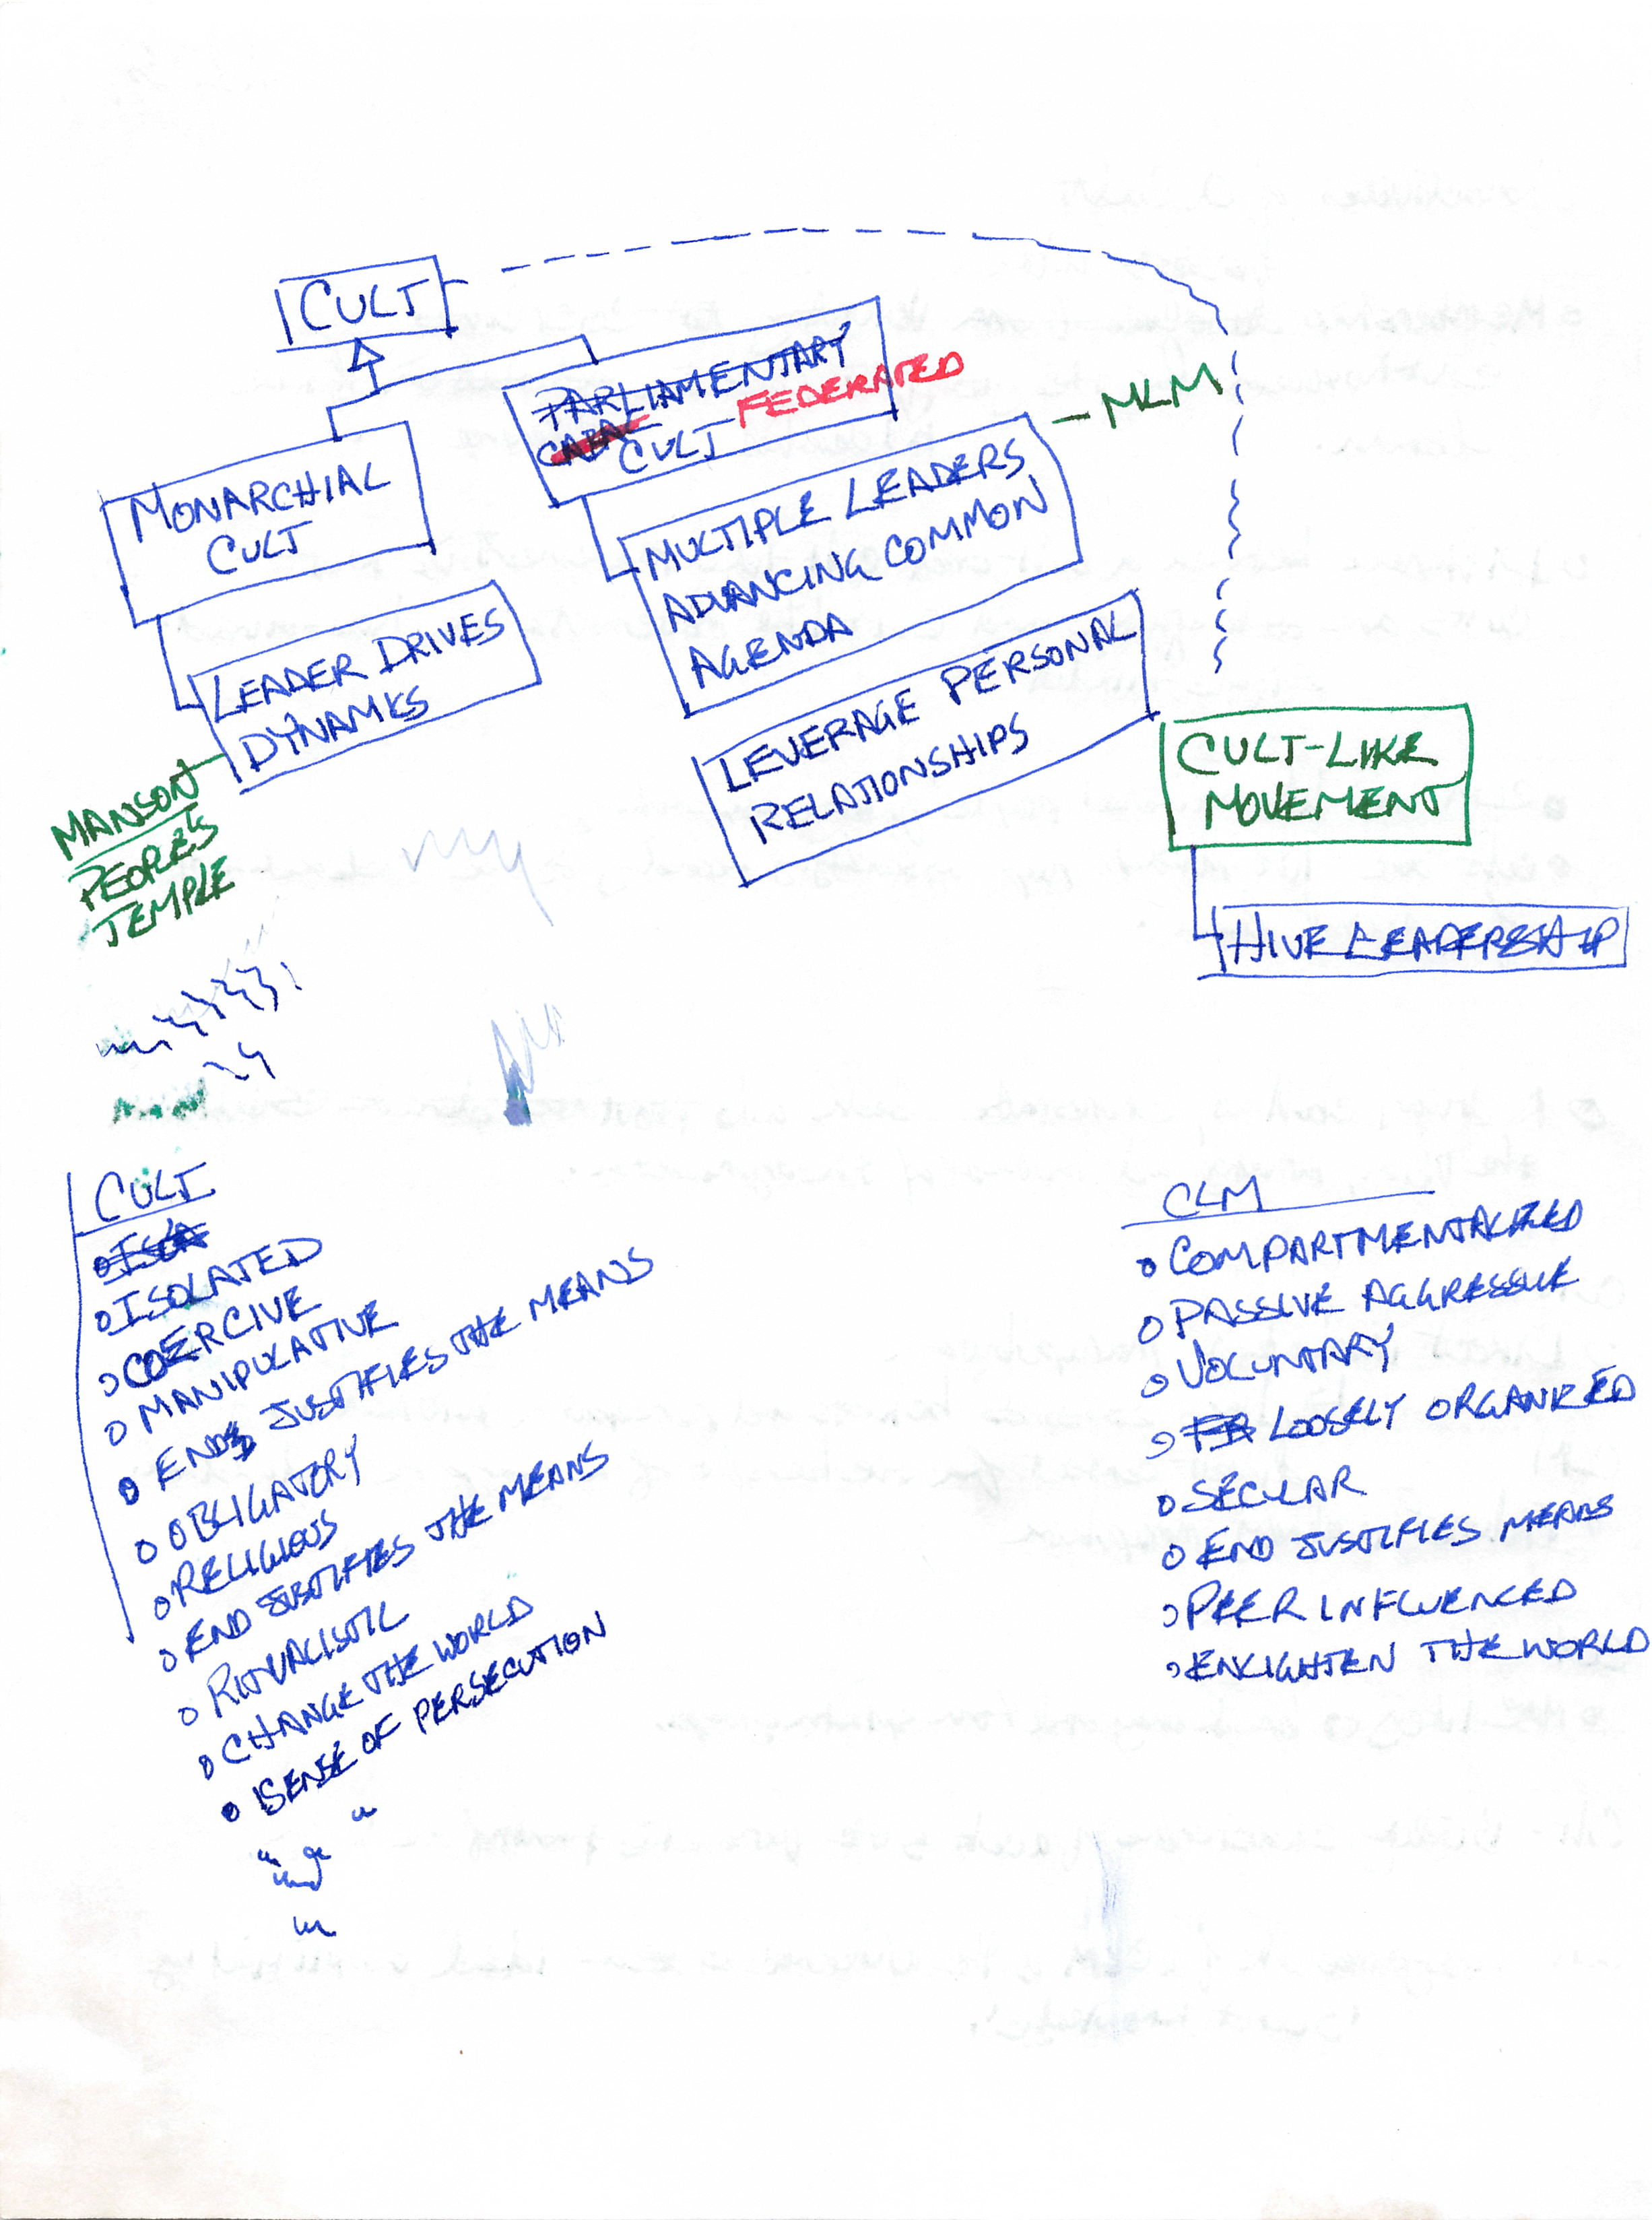 CULT
PARLIAMENTARY
FEDERATED
CABAL
CULT
MLM
MONARCHIAL
CULT
MULTIPLE LEADERS
ADVANCING COMMON
AGENDA
LEADER DRIVES
DYNAMKS
LEVERAGE PERSONAL
RELATIONSHIPS
CULT-LIKE
MOVEMENT
MANSON
PEOPLE'S
TEMPLE
HIVE LEADERSHIP
CULT
ISOLATED
COERCIVE
MANIPULATIVE
ENDS JUSTIFIES THE MEANS
OBLIGATORY
RELIGIOUS
END JUSTIFIES THE MEANS
RITUALISTIC
CHANGE THE WORLD
SENSE OF PERSECUTION
CLM
COMPARTMENTALIZED
PASSIVE AGGRESSIVE
VOLUNTARY
LOOSELY ORGANIZED
SECULAR
END JUSTIFIES MEANS
PEER INFLUENCED
ENLIGHTEN THE WORLD